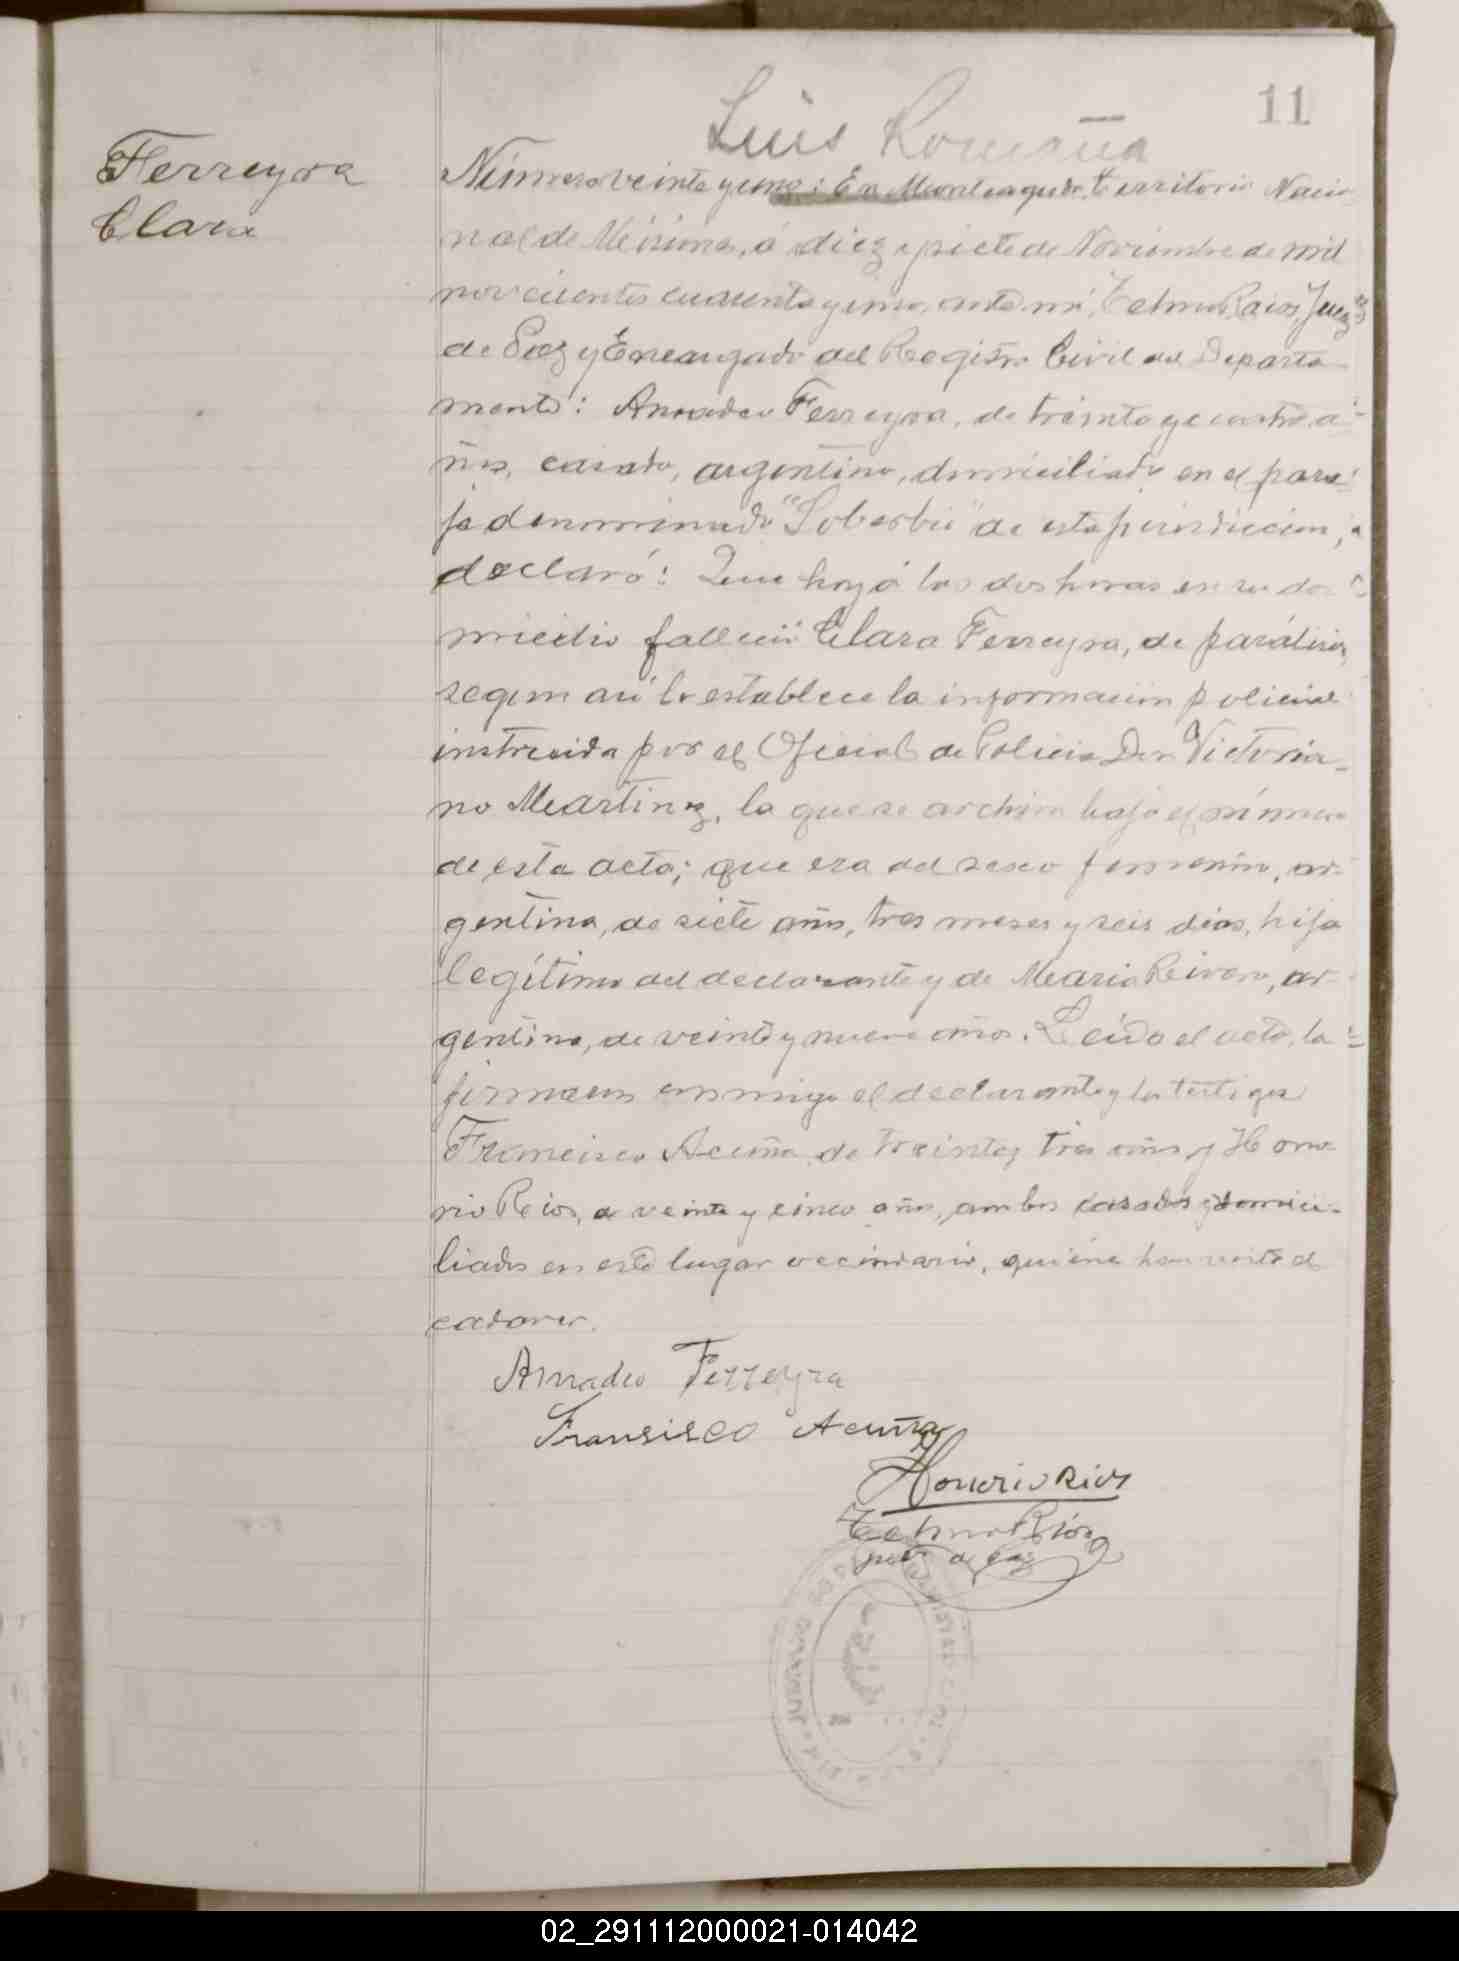 11
Luis Romaña
Ferreyra
Clara
Número veinte y uno: En Monteagudo, Territorio Nacio
nal de Misiones, á diez y siete de Noviembre de mil
novecientos cuarenta y uno, ante mi, Telmo Rios, Juez
de Paz y Encargado del Registro Civil del Departa
mento: Amadeo Ferreyra, de treinta y cuatro a-
ños, casado, argentino, domiciliado en el para-
je denominado "Soberbio" de esta jurisdiccion,
declaró: Que hoy á las dos horas en su do
micilio falleció Clara Ferreyra, de parálisis,
segun asi lo establece la informacion policial
instruida por el Oficial de Policia Don Victoria-
no Martinez, la que se archiva bajo el número
de esta acta; que era del sexo femenino, ar-
gentina, de siete años, tres meses y seis dias, hija
legítima del declarante y de Maria Rivero, ar-
gentina, de veinte y nueve años. Leida el acta, la
firmaron conmigo el declarante y los testigos
Francisco Acuña de treinta y tres años y Hono
rio Rios, de veinte y cinco años, ambos casados y domici-
liados en este lugar vecindario, quiene han visto el
cadaver.
Amadeo Ferreyra
Fransisco Acuña
Honorio Rios
Telmo Rios
juez de Paz
02_291112000021-014042